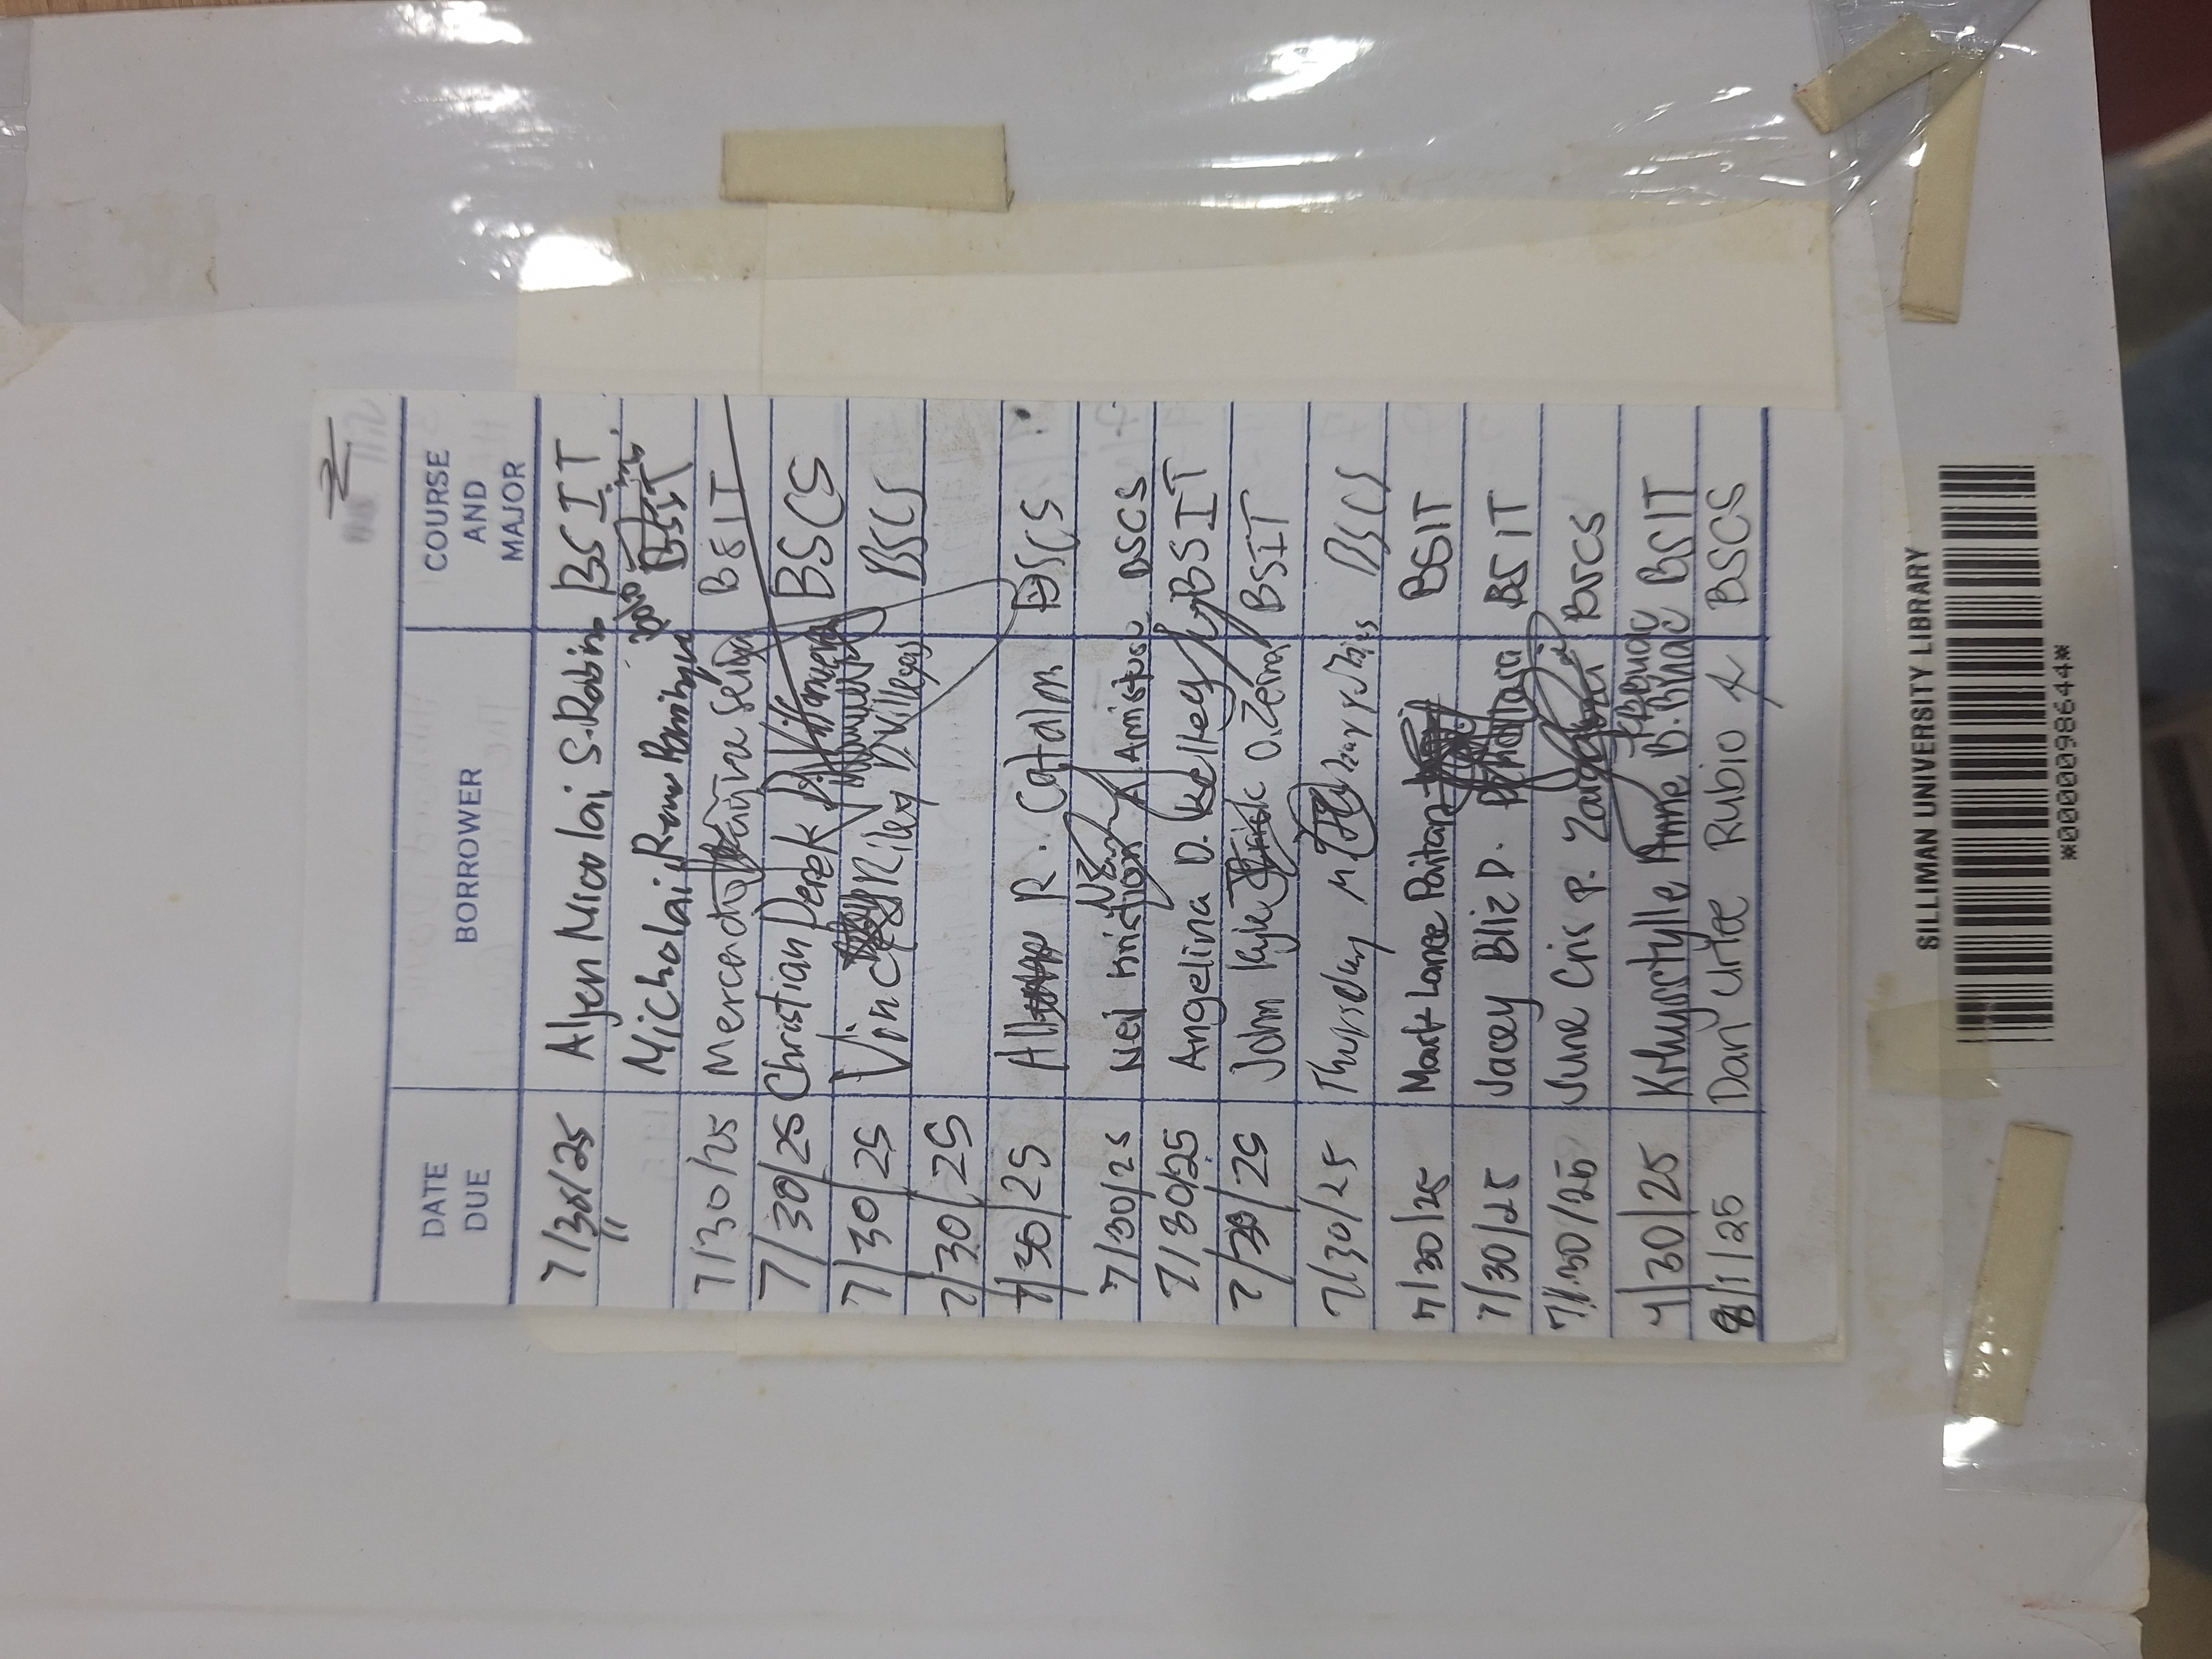 DATE DUE BORROWER COURSE AND MAJOR
7/30/25 Aljen Nicolai S. Robin BSIT
" Micholai Romo BSIT
7/30/25 Mercado BSIT
7/30/25 Christian Derek D. Villanueva BSCS
7/30/25 Vince Riley D. Villegas BSCS
7/30/25
7/30/25 R. BSCS
7/30/25 Neil Kristian A. BSCS
7/30/25 Angelina D. Kelley BSIT
7/30/25 John Kyle O. Zerna BSIT
7/30/25 Thursday M. BSCS
7/30/25 Mark Lance Paitan BSIT
7/30/25 Jacey Bliz D. BSIT
7/30/25 June Cris P. BSCS
KBBuac
7/30/25 Krhysstylle Anne B. Buac BSIT
8/1/25 Dan Urlee Rubio BSCS
SILLIMAN UNIVERSITY LIBRARY
*0000098644*